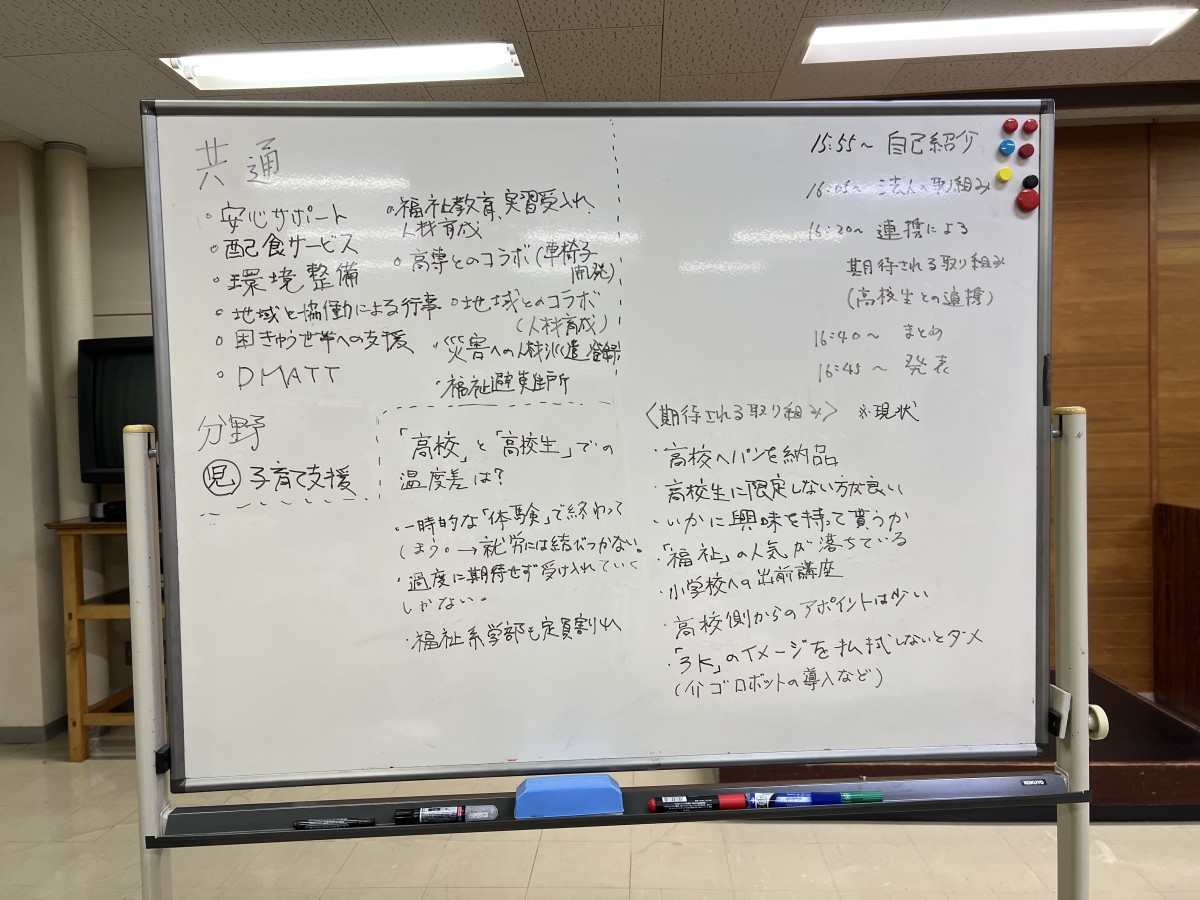 共通
・安心サポート
・配食サービス
・環境整備
・地域と協働による行事
・困きゅう世帯への支援
・DMATT
・福祉教育、実習受入れ、
人材育成
・高専とのコラボ(車椅子
開発)
・地域とのコラボ
(人材育成)
・災害への人材派遣登録
・福祉避難所
分野
児 子育て支援
「高校」と「高校生」での
温度差は?
・一時的な「体験」で終わって
しまう。→就労には結びつかない。
・過度に期待せず受け入れていく
しかない。
・福祉系学部も定員割れ
15:55～ 自己紹介
16:05～ 法人の取組み
16:20～ 連携による
期待される取り組み
(高校生との連携)
16:40～ まとめ
16:45～ 発表
〈期待される取り組み〉 ※現状
・高校へパンを納品
・高校生に限定しない方が良い
・いかに興味を持って貰うか
・「福祉」の人気が落ちている
・小学校への出前講座
・高校側からのアポイントは少い
・「3K」のイメージを払拭しないとダメ
(介ゴロボットの導入など)
KOKUYO